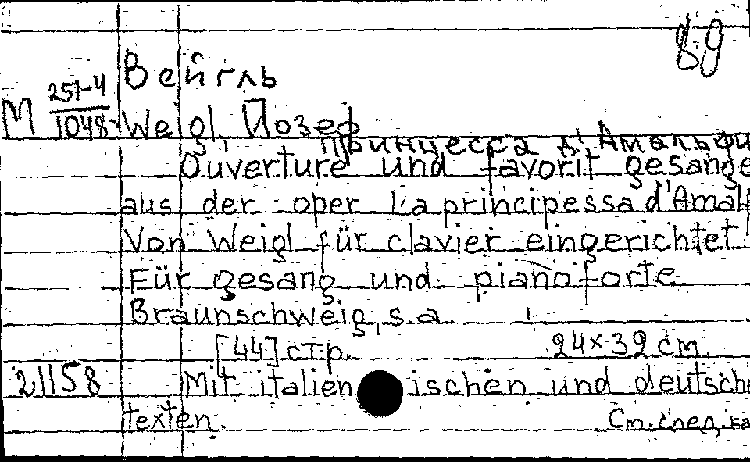 89
Вейгль
М 251-4/1048 Weigl, Йозеф
Принцесса д'Амальфи
Ouverture und favorit gesange
aus der oper La principessa d'Amal
Von Weigl für clavier eingerichtet
Für gesang und pianoforte
Braunschweig, s.a.
[44] стр. 24×32 cm.
21158 Mit italienischen und deutsche
texten.
См. след. ка